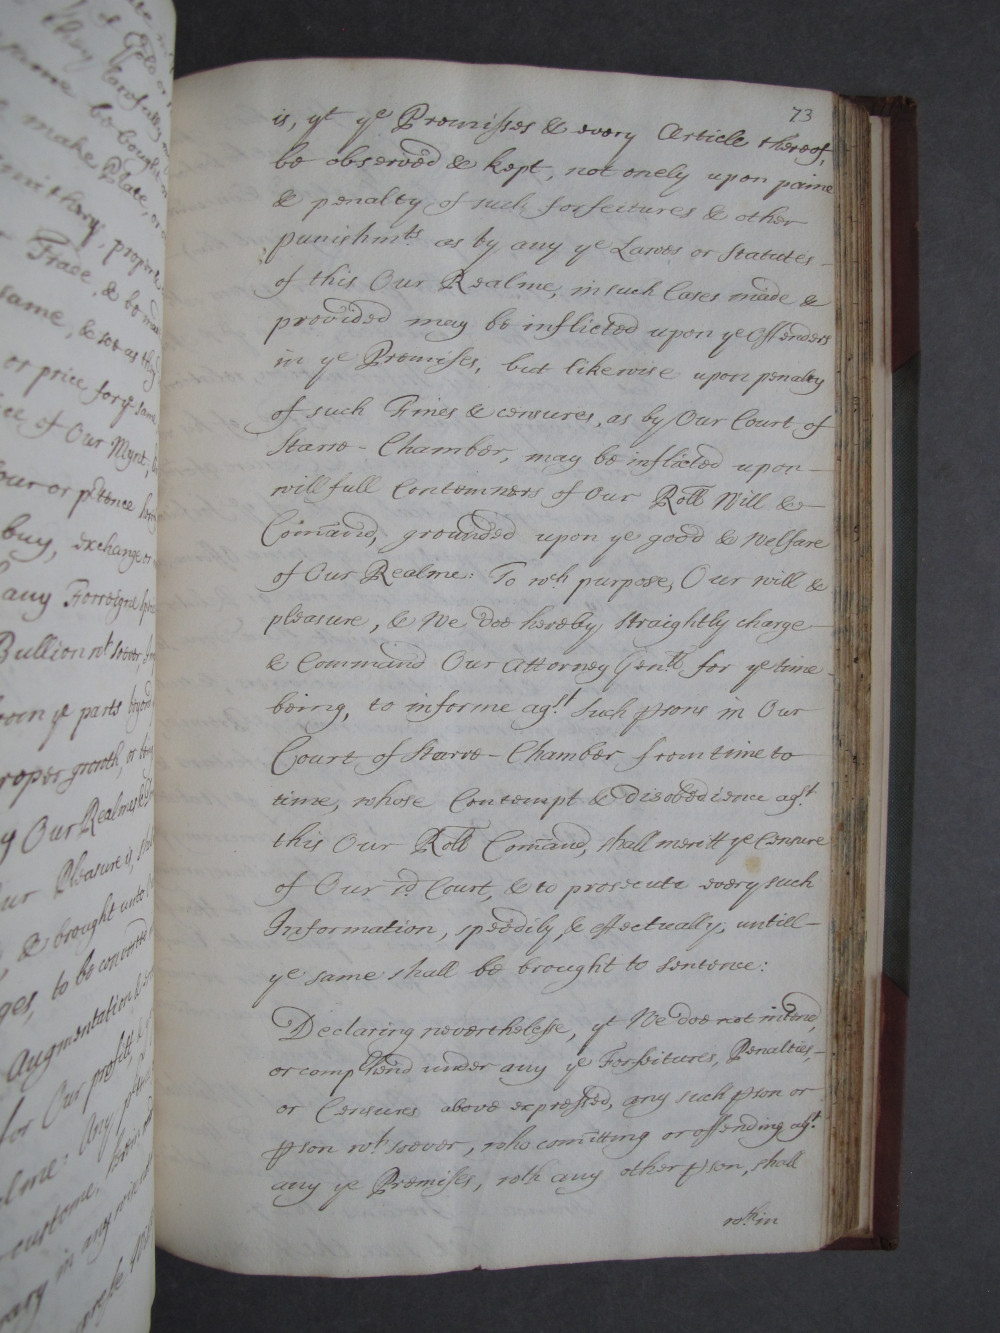 73
is, yt ye Premisses & every Article thereof,
be observed & kept, not onely upon paine
& penalty of such forfeitures & other
punishmts as by any ye Lawes or Statutes
of this Our Realme, in such Cases made &
provided may be inflicted upon ye Offenders
in ye Premises, but likewise upon penalty
of such Fines & censures, as by Our Court of
Starre-Chamber, may be inflicted upon
willfull Contemners of Our Roll Will &
Comand, grounded upon ye good & welfare
of Our Realme: To wch purpose, Our will &
pleasure, & We doe hereby straightly charge
& Command Our Attorney Genll for ye time
being, to informe agt such psons in Our
Court of Starre-Chamber from time to
time, whose Contempt & disobedience agt
this Our Roll Comand, shall meritt ye Censure
of Our sd Court, & to prosecute every such
Information, speedily & effectually, untill
ye same shall be brought to Sentence:
Declaring neverthelesse, yt We doe not intend,
or comprhend under any ye Forfeitures, Penalties,
or Censures above expressed, any such pson or
pson wt soever, who comitting or offending agt
any ye Premises, wth any other pson, shall
wthin
same be bought
make Plate, or
proper
Trade, & be made
same, & so as they
or price for ye same
of Our Mynt,
our or ptence
buy, exchange or
any Forreigne
Bullion wt soever
ye parts beyond
proper growth, or
Our Realmes
Our Pleasure is,
& brought unto
to be converted
Augmentation &
for Our profitt,
Any
custome,
in any